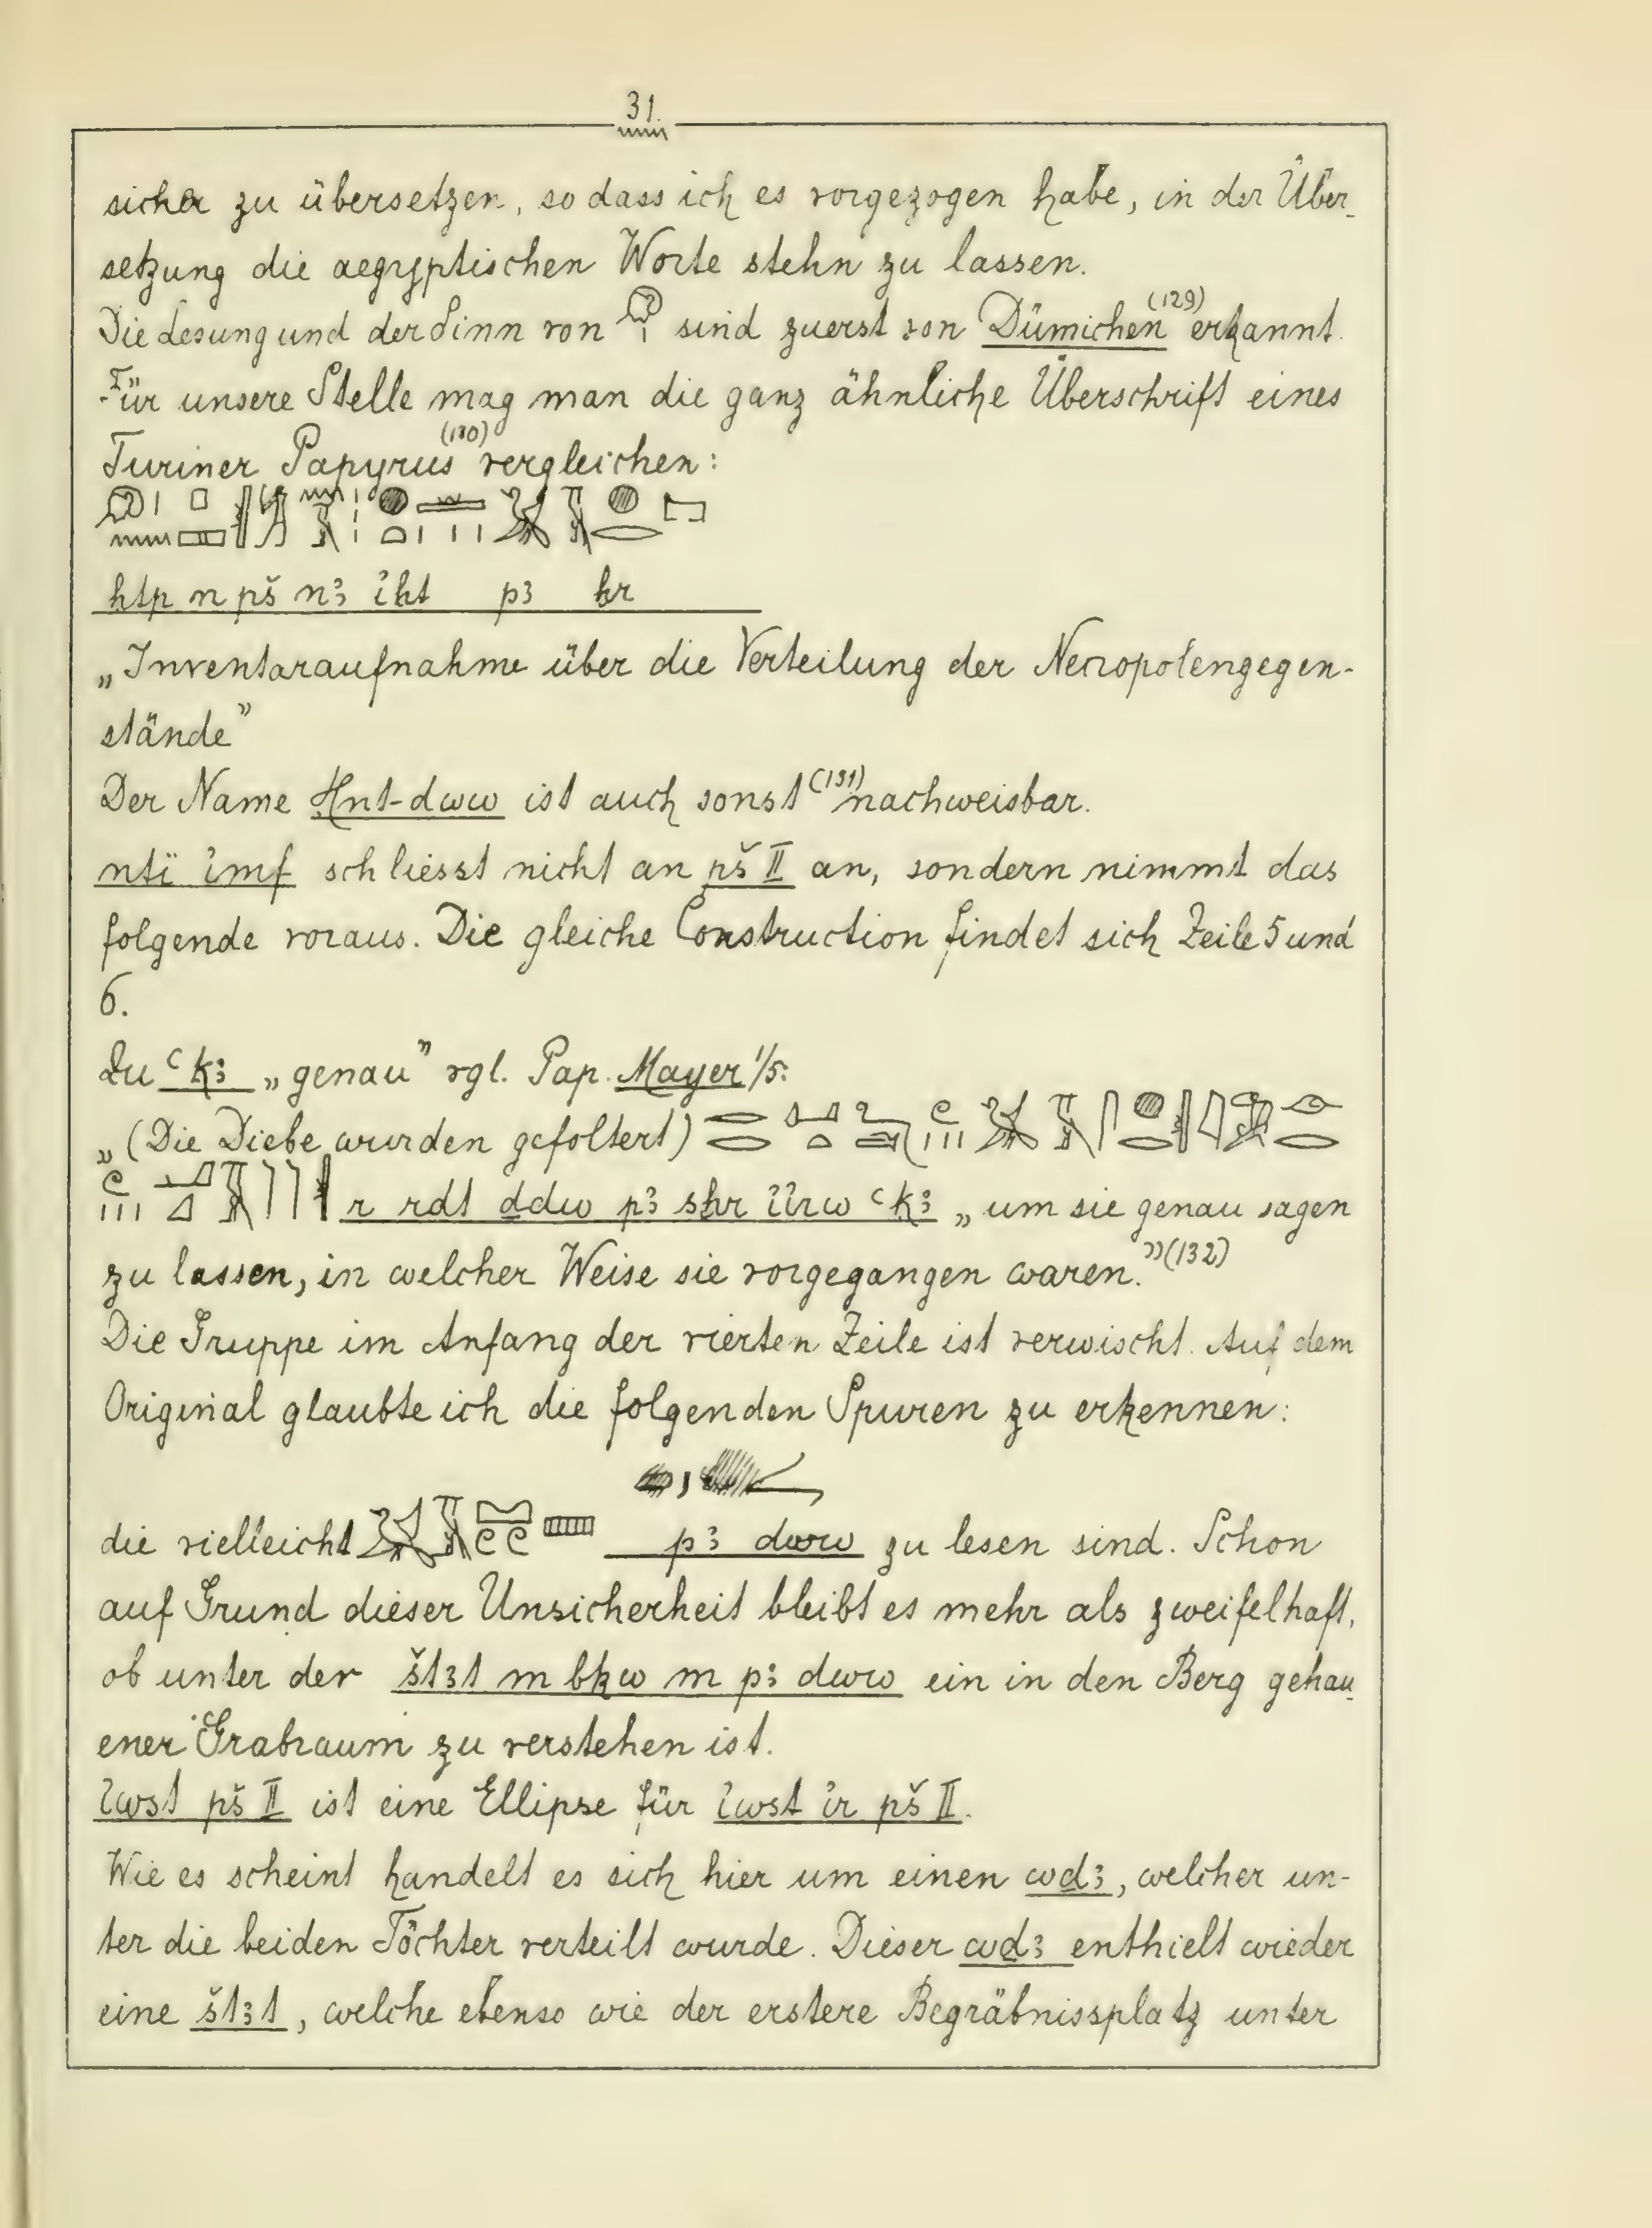 31.
sicher zu übersetzen, so dass ich es vorgezogen habe, in der Über-
setzung die aegyptischen Worte stehn zu lassen.
Die Lesung und der Sinn von sind zuerst von Dümichen (129) erkannt.
Für unsere Stelle mag man die ganz ähnliche Überschrift eines
Turiner Papyrus (130) vergleichen:
htp n pš nꜣ i͗ht pꜣ hr
„Inventaraufnahme über die Verteilung der Necropolengegen-
stände”
Der Name Hnt-dww ist auch sonst (131) nachweisbar.
ntï i͗mf schliesst nicht an pš II an, sondern nimmt das
folgende voraus. Die gleiche Construction findet sich Zeile 5 und
6.
Zu ꜥkꜣ „genau” vgl. Pap. Mayer 1/5:
„(Die Diebe wurden gefoltert)
r rdt ddw pꜣ shr i͗i͗rw ꜥkꜣ „um sie genau sagen
zu lassen, in welcher Weise sie vorgegangen waren.”(132)
Die Gruppe im Anfang der vierten Zeile ist verwischt. Auf dem
Original glaubte ich die folgenden Spuren zu erkennen:
die vielleicht pꜣ dww zu lesen sind. Schon
auf Grund dieser Unsicherheit bleibt es mehr als zweifelhaft,
ob unter der štꜣt m bkw m pꜣ dww ein in den Berg gehau-
ener Grabraum zu verstehen ist.
i͗wst pš II ist eine Ellipse für i͗wst i͗r pš II.
Wie es scheint handelt es sich hier um einen wḏꜣ, welcher un-
ter die beiden Töchter verteilt wurde. Dieser wḏꜣ enthielt wieder
eine štꜣt, welche ebenso wie der erstere Begräbnissplatz unter